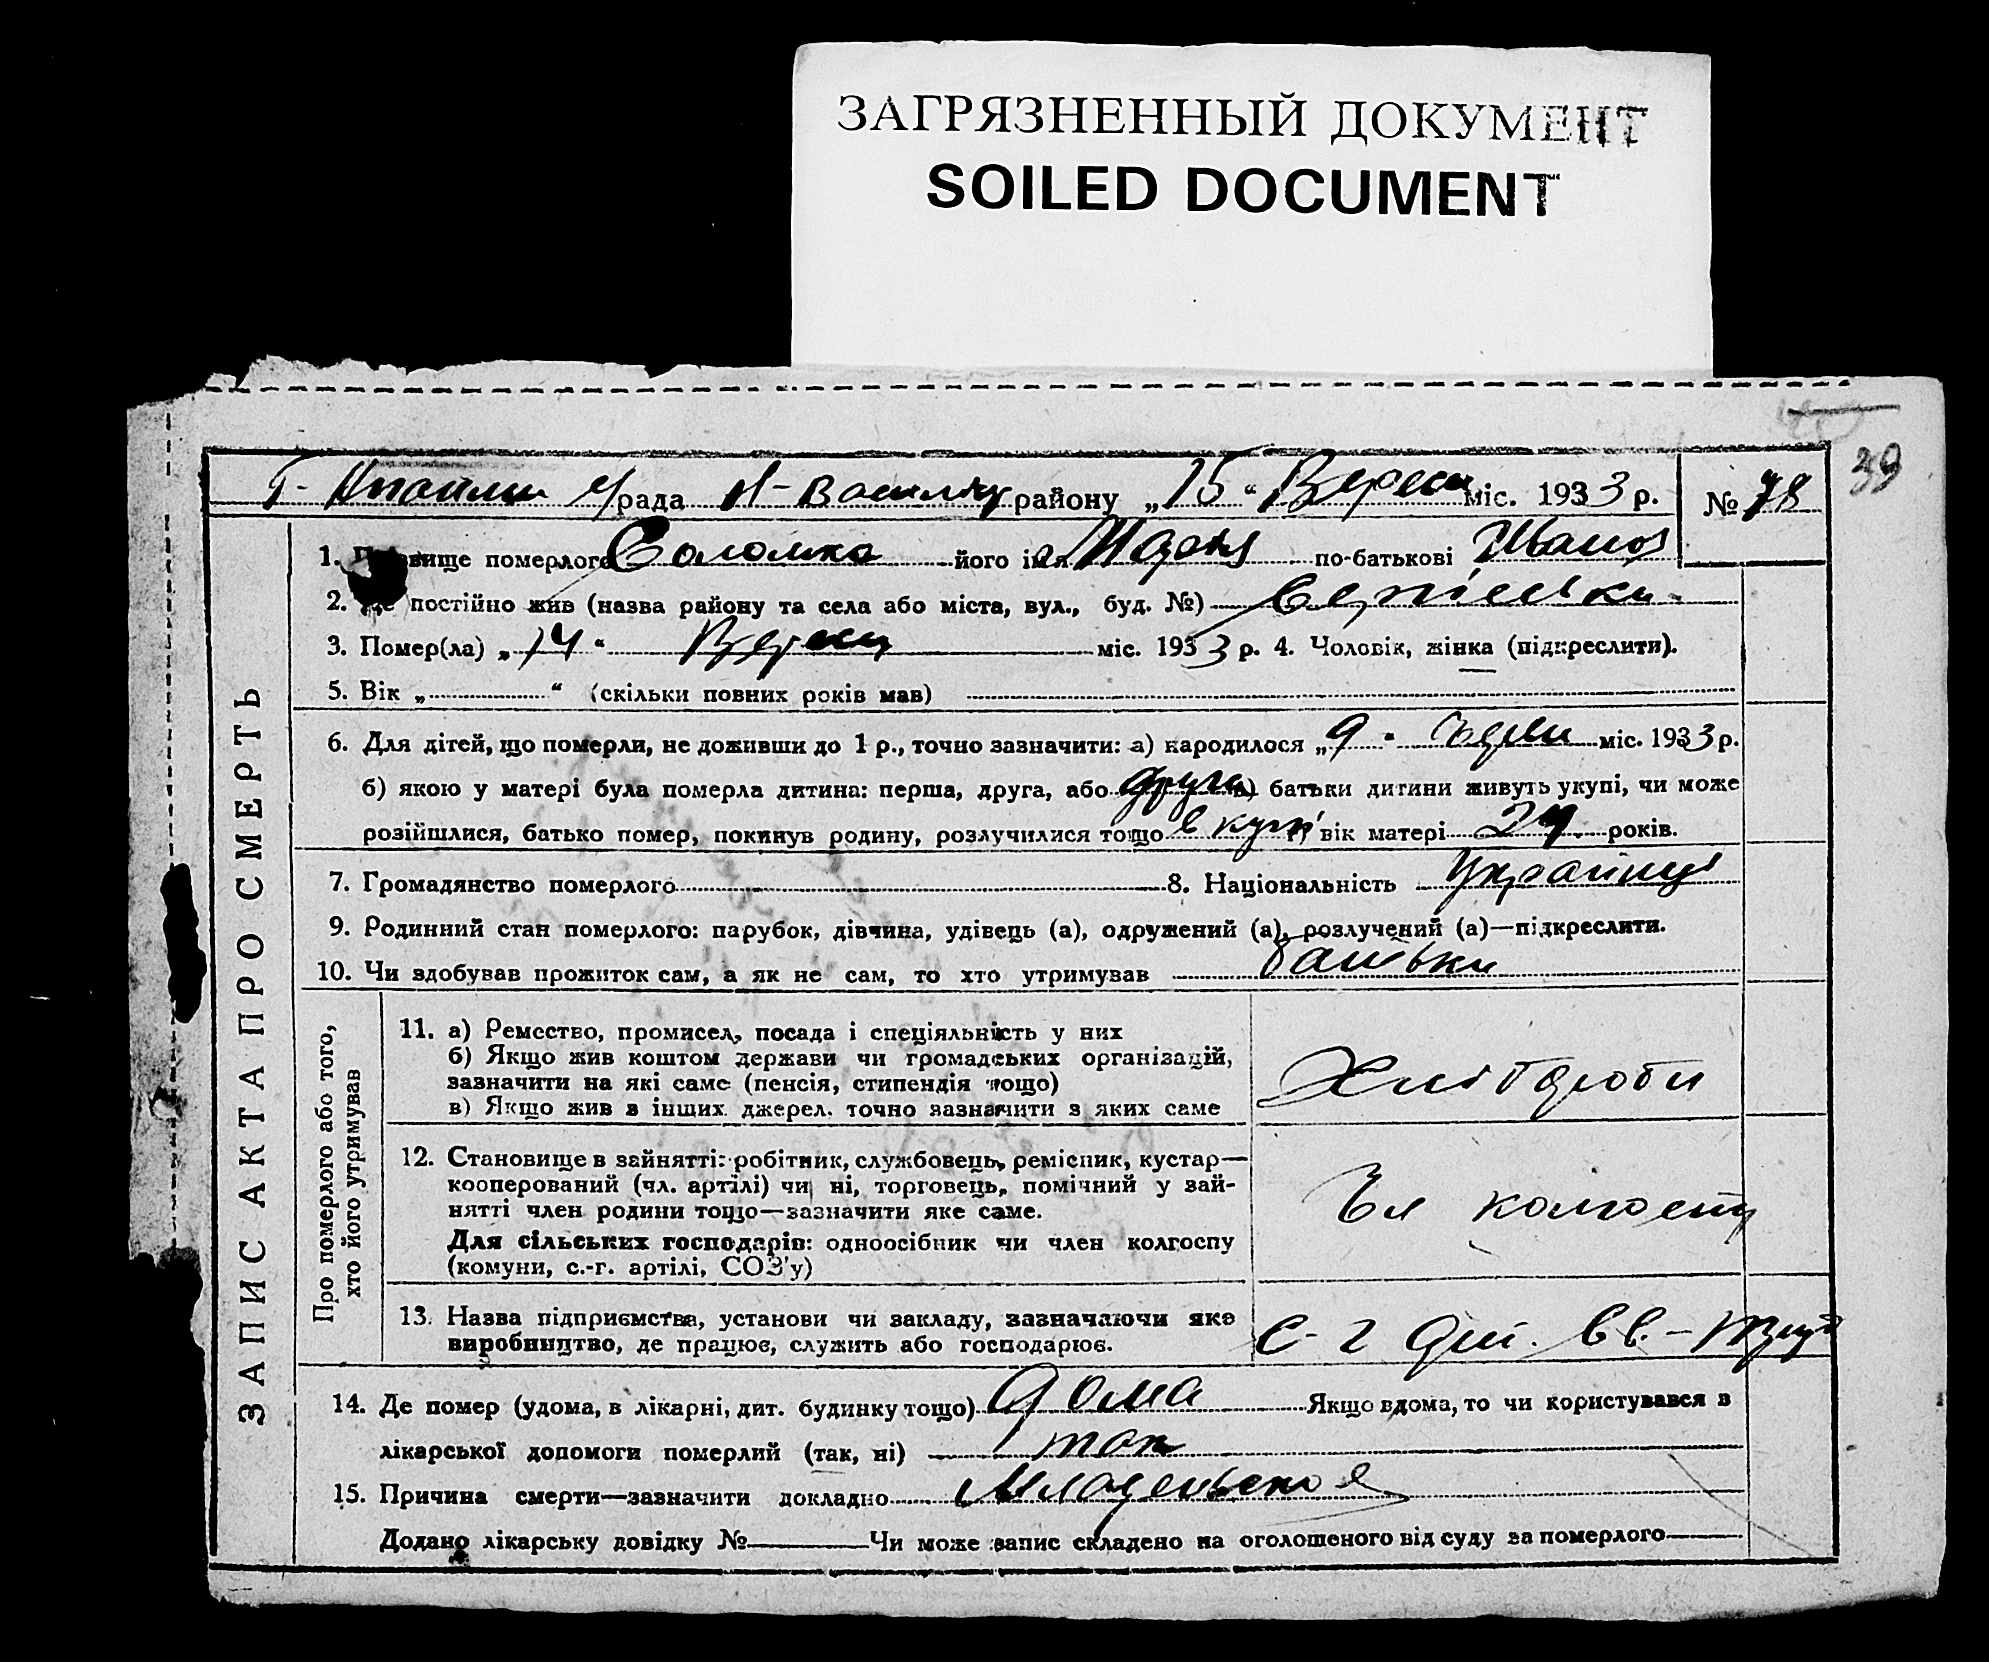 ЗАГРЯЗНЕННЫЙ ДОКУМЕНТ
SOILED DOCUMENT
39
рада району „15“ Вересн міс. 1933 р. № 78
ЗАПИС АКТА ПРО СМЕРТЬ
1. померлого Соломка його ім'я Марія по-батькові Іванов
2. постійно жив (назва району та села або міста, вул., буд. №)
3. Помер(ла) „14“ міс. 1933 р. 4. Чоловік, жінка (підкреслити).
5. Вік „ “ (скільки повних років мав)
6. Для дітей, що померли, не доживши до 1 р., точно зазначити: а) народилося „9“ міс. 1933 р.
б) якою у матері була померла дитина: перша, друга, або друга в) батьки дитини живуть укупі, чи може
розійшлися, батько помер, покинув родину, розлучилися тощо вкупі вік матері років.
7. Громадянство померлого 8. Національність
9. Родинний стан померлого: парубок, дівчина, удівець (а), одружений (а), розлучений (а)—підкреслити.
10. Чи здобував прожиток сам, а як не сам, то хто утримував батьки
Про померлого або того,
хто його утримував
11. а) Ремество, промисел, посада і спеціяльність у них
б) Якщо жив коштом держави чи громадських організацій,
зазначити на які саме (пенсія, стипендія тощо)
в) Якщо жив з інших джерел, точно зазначити з яких саме
Хліброби
12. Становище в зайнятті: робітник, службовець, ремісник, кустар—
кооперований (чл. артілі) чи ні, торговець, помічний у зай-
нятті член родини тощо—зазначити яке саме.
Для сільських господарів: одноосібник чи член колгоспу
(комуни, с.-г. артілі, СОЗ'у)
Чл колгоспу
13. Назва підприємства, установи чи закладу, зазначаючи яке
виробництво, де працює, служить або господарює.
14. Де помер (удома, в лікарні, дит. будинку тощо) дома Якщо вдома, то чи користувався з
лікарської допомоги померлий (так, ні) так
15. Причина смерти—зазначити докладно Младенская
Додано лікарську довідку № Чи може запис складено на оголошеного від суду за померлого